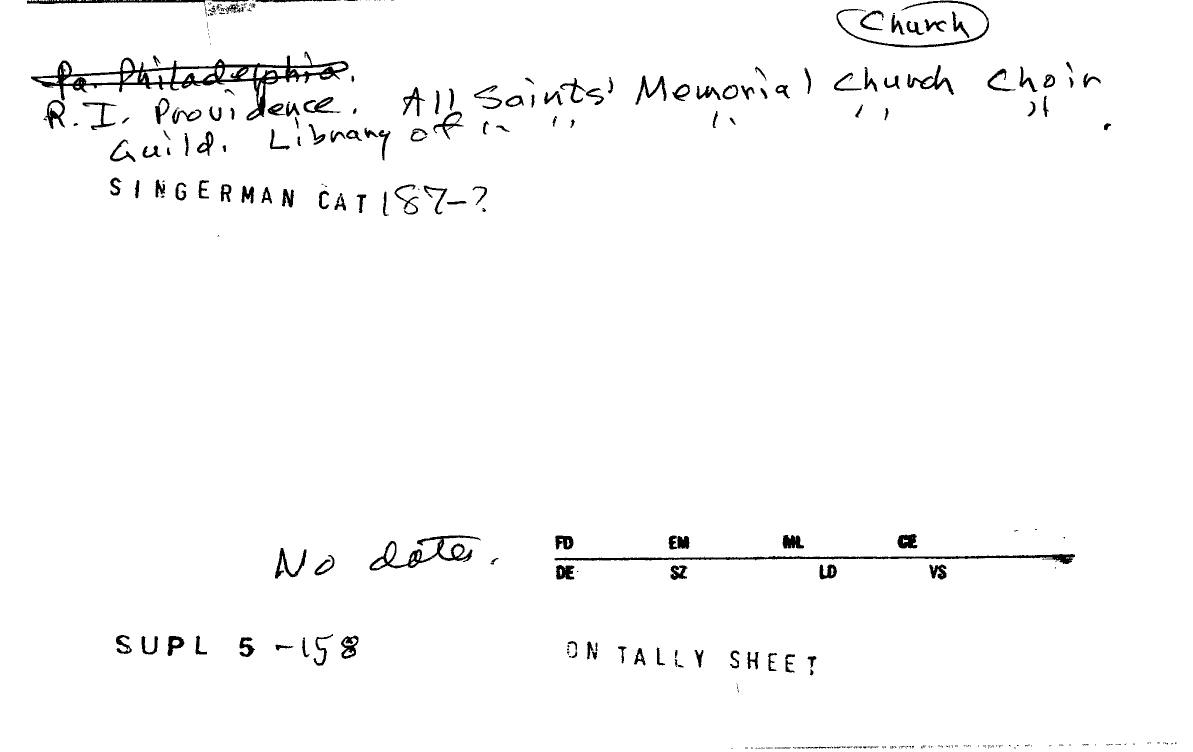 Church
Pa. Philadelphia.
R. I. Providence. All Saints' Memorial Church Choir
Guild. Library of " " " " " .
SINGERMAN CAT 187-?
No dates.
FD EM ML CE
DE SZ LD VS
SUPL 5 -158
ON TALLY SHEET